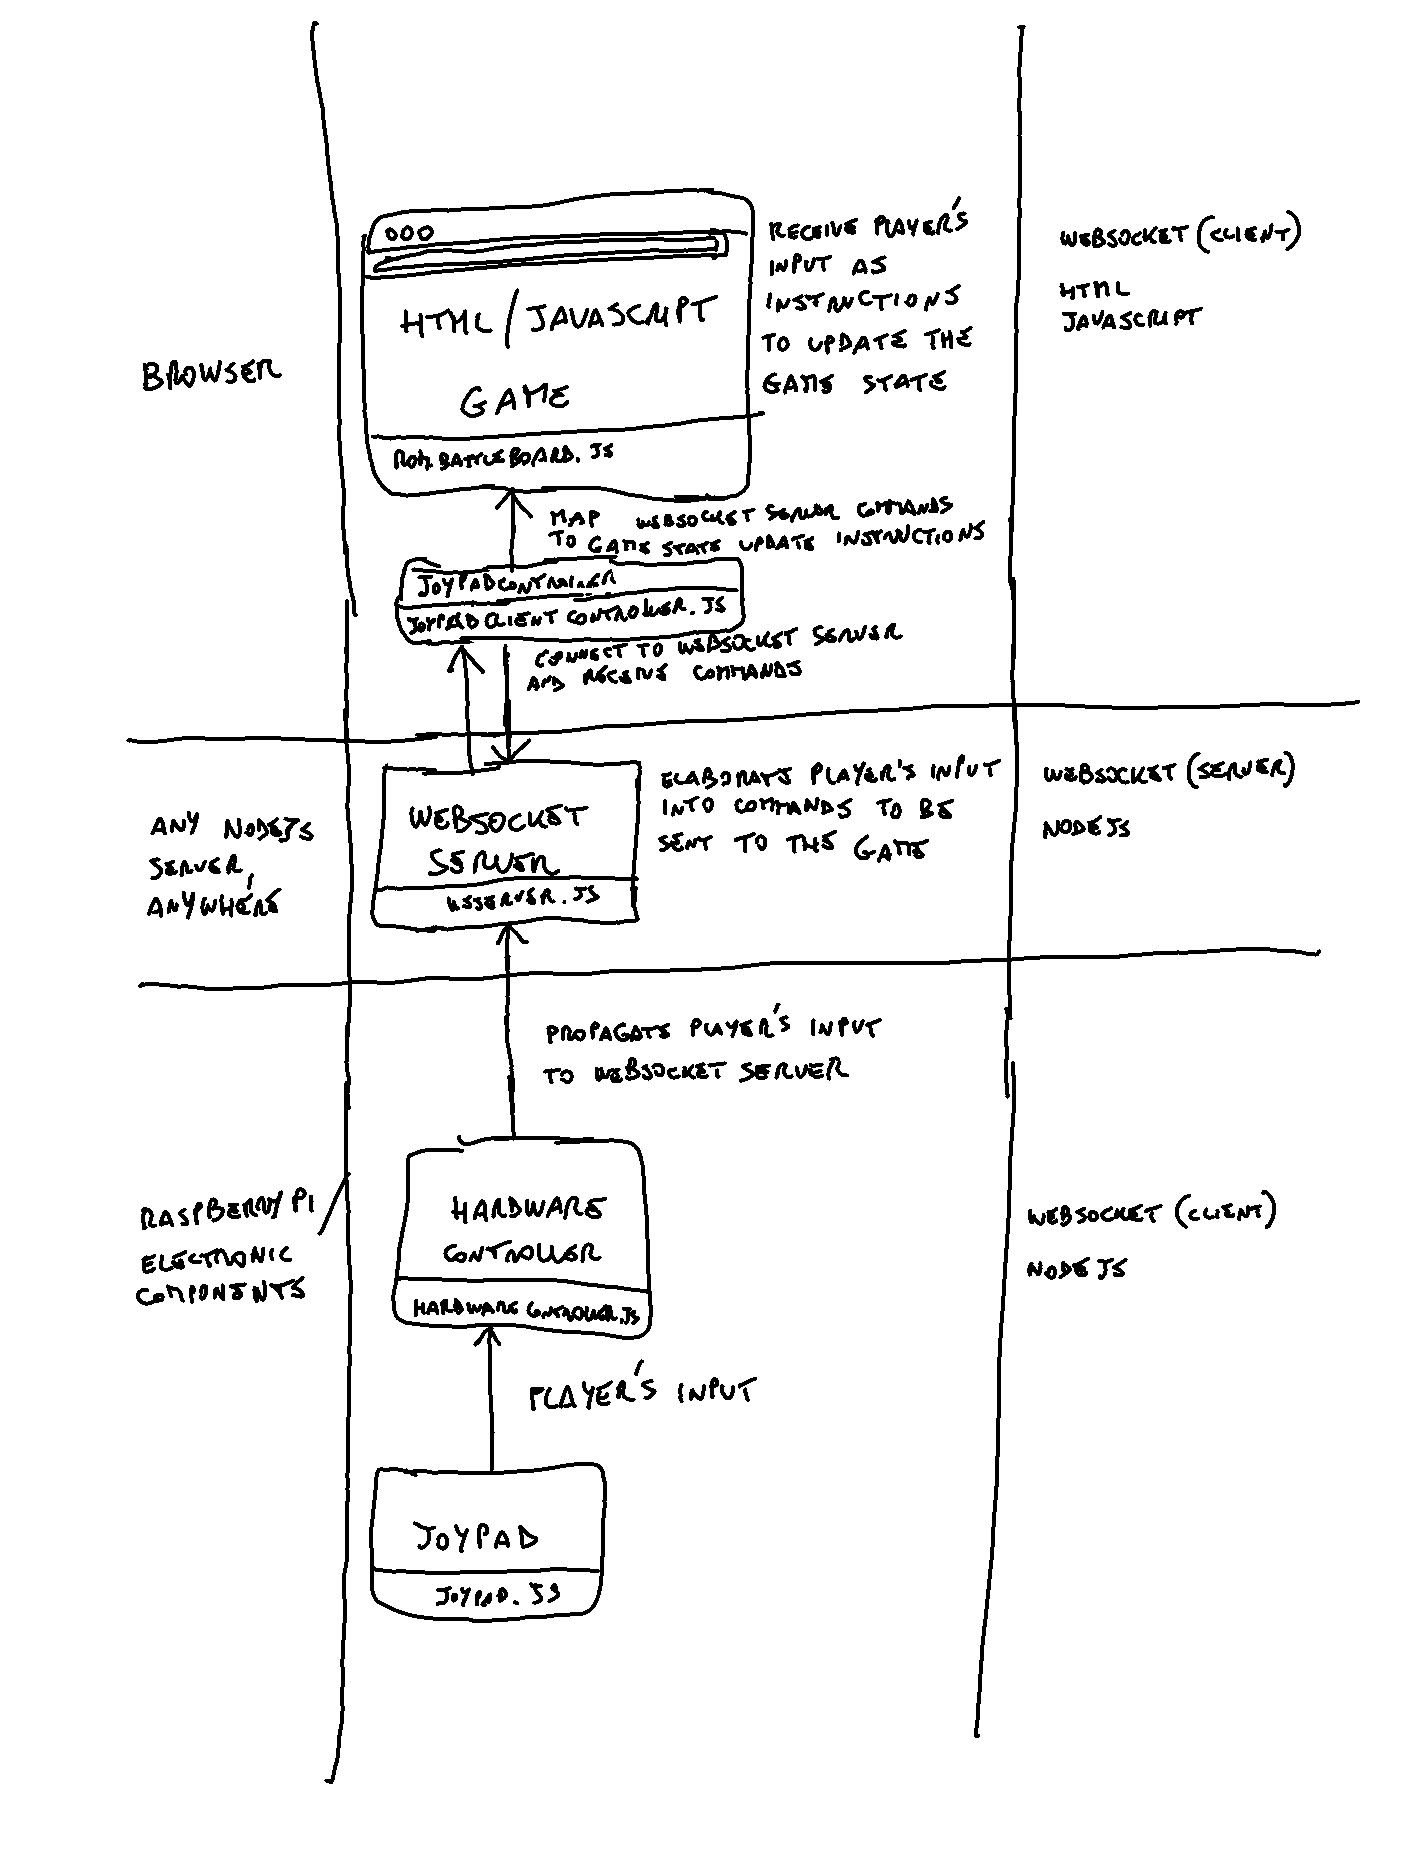 RECEIVE PLAYER'S
INPUT AS
INSTRUCTIONS
TO UPDATE THE
GAME STATE
WEBSOCKET (CLIENT)
HTML
JAVASCRIPT
HTML/JAVASCRIPT
GAME
BROWSER
BATTLEBOARD.JS
MAP WEBSOCKET SERVER COMMANDS
TO GAME STATE UPDATE INSTRUCTIONS
JOYPADCONTROLLER
JOYPADCLIENTCONTROLLER.JS
CONNECT TO WEBSOCKET SERVER
AND RECEIVE COMMANDS
ANY NODEJS
SERVER,
ANYWHERE
WEBSOCKET
SERVER
WSSERVER.JS
ELABORATS PLAYER'S INPUT
INTO COMMANDS TO BE
SENT TO THE GAME
WEBSOCKET (SERVER)
NODEJS
PROPAGATE PLAYER'S INPUT
TO WEBSOCKET SERVER
RASPBERRY PI
ELECTRONIC
COMPONENTS
HARDWARE
CONTROLLER
HARDWARECONTROLLER.JS
WEBSOCKET (CLIENT)
NODEJS
PLAYER'S INPUT
JOYPAD
JOYPAD.JS